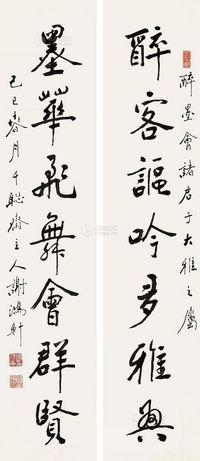 醉墨會諸君于大雅之屬
醉客謳吟多雅興
墨華飛舞會群賢
己巳春月千聯齋主人謝鴻軒